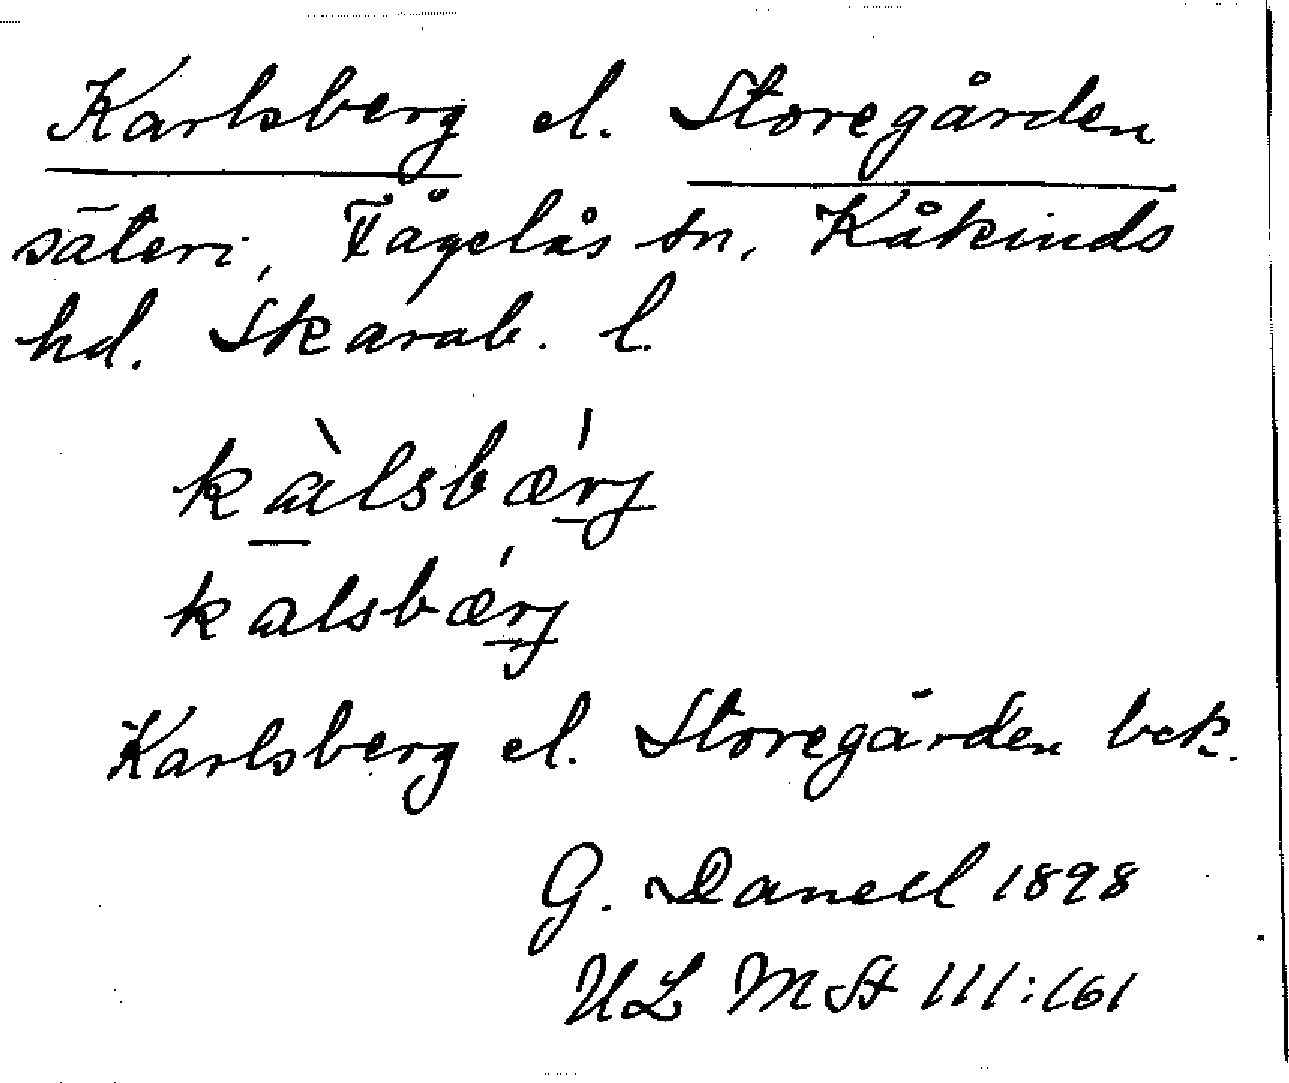 Karlsberg el. Storegården
säteri, Fågelås sn, Kåkinds
hd. Skarab. l.
kàlsbǽrj
kalsbǽrj
Karlsberg el. Storegården bek.
G. Danell 1898
ULMSt 111:161